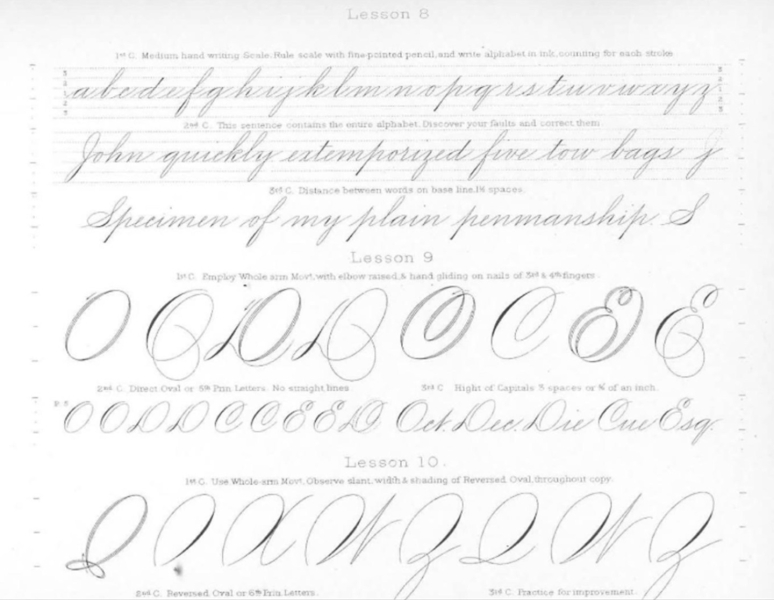 Lesson 8
1st C. Medium hand writing Scale. Rule scale with fine pointed pencil, and write alphabet in ink, counting for each stroke
abcdefghijklmnopqrstuvwxyz
2nd C. This sentence contains the entire alphabet. Discover your faults and correct them
John quickly extemporized five tow bags j
3rd C. Distance between words on base line, 1½ spaces.
Specimen of my plain penmanship. S
Lesson 9
1st C. Employ Whole arm Movt. with elbow raised, & hand gliding on nails of 3rd & 4th fingers.
O C D D O C E E
2nd C. Direct Oval or 5th Prin Letters. No straight lines
3rd C Hight of Capitals 3 spaces or of an inch.
O O D D C C E E D Oct. Dec. Die Cue Esq.
Lesson 10.
1st C. Use Whole-arm Movt. Observe slant, width & shading of Reversed Oval, throughout copy.
X W Z Q W Z
2nd C. Reversed Oval or 6th Prin. Letters.
3rd C. Practice for improvement.